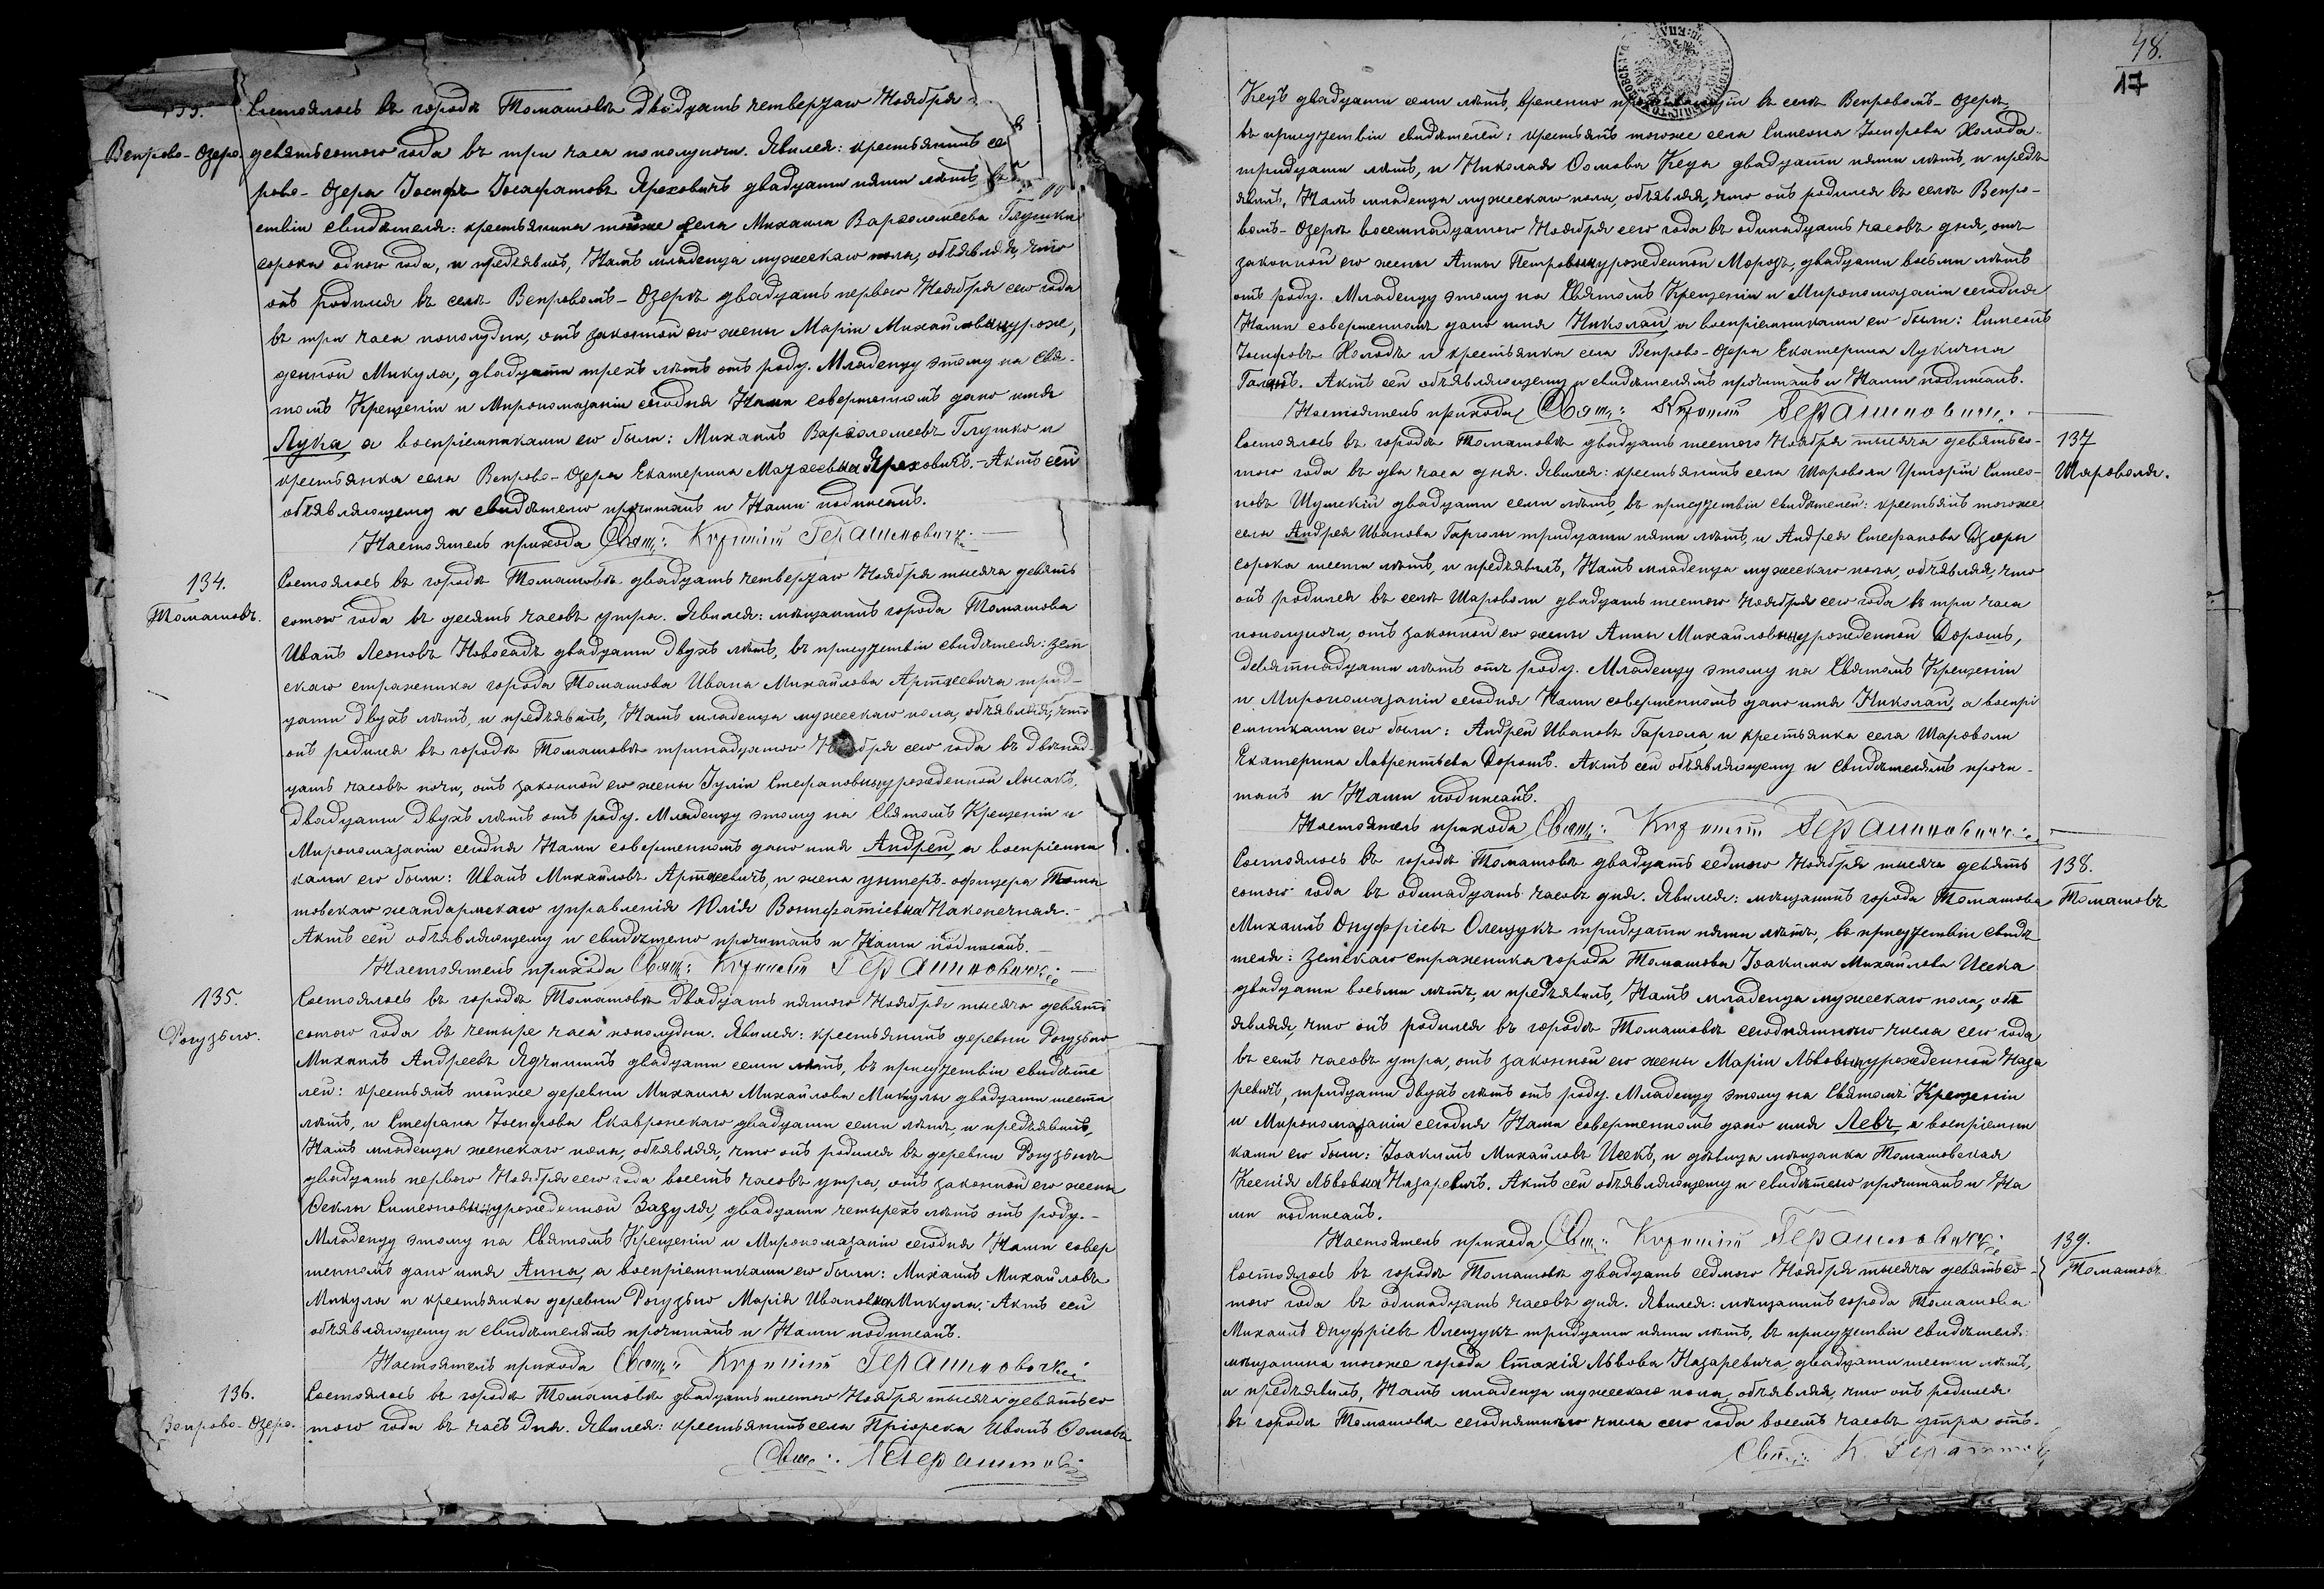 133.
Венрово-Озеро.
Состоялось въ городѣ Томашовѣ двадцать четвертаго Ноября
девятьсотого года въ три часа пополуночи. Явился: крестьянинъ се
рово-Озера Іосифъ Іосафатовъ Яреховичъ двадцати пяти лѣтъ, въ
ствіи свидѣтеля: крестьянина тойже села Михаила Варѳоломеева Глушки
сорока одного года, и предъявилъ, Намъ младенца мужескаго пола, объявляя, что
онъ родился въ селѣ Венровомъ-Озерѣ двадцать перваго Ноября сего года
въ три часа пополудни, отъ законной его жены Маріи Михайловны урож,
денной Микула, двадцати трехъ лѣтъ отъ роду. Младенцу этому на Свя-
томъ Крещеніи и Миропомазаніи сегодня Нами совершенномъ дано имя
Лука, а воспріемниками его были: Михаилъ Варѳоломеевъ Глушко и
крестьянка села Венрово-Озера Екатерина Яреховичъ.-Актъ сей
объявляющему и свидѣтелю прочитанъ и Нами подписанъ.
Настоятель прихода Свящ: Герашимовичъ
134.
Томашовъ.
Состоялось въ городѣ Томашовѣ двадцать четвертаго Ноября тысяча девять
сотого года въ десять часовъ утра. Явился: мѣщанинъ города Томашова
Иванъ Леоновъ Новосадъ двадцати двухъ лѣтъ, въ присутствіи свидѣтеля: зем
скаго стражника города Томашова Ивана Михайлова Артхевича трид-
цати двухъ лѣтъ, и предъявилъ, Намъ младенца мужескаго пола, объявляя, что
онъ родился въ городѣ Томашовѣ тринадцатого Ноября сего года въ двѣнад-
цать часовъ ночи, отъ законной его жены Іуліи Стефановны урожденной Лысакъ,
двадцати двухъ лѣтъ отъ роду. Младенцу этому на Святомъ Крещеніи и
Миропомазаніи сегодня Нами совершенномъ дано имя Андрей, а воспріемни
ками его были: Иванъ Михайловъ Артхевичъ, и жена унтеръ-офицера Тома
шовскаго жандармскаго управленія Юлія Вонифатіевна Наконечная.-
Актъ сей объявляющему и свидѣтелю прочитанъ и Нами подписанъ.
Настоятель прихода Свящ: Герашимовичъ
135.
Рогузьно.
Состоялось въ городѣ Томашовѣ двадцать пятого Ноября тысяча девять
сотого года въ четыре часа пополудни. Явился: крестьянинъ деревни Рогузьно
Михаилъ Андреевъ Ядчишинъ двадцати семи лѣтъ, въ присутствіи свидѣте
лей: крестьянъ тойже деревни Михаила Михайлова Микулы двадцати шести
лѣтъ, и Стефана Іосифова Скавронскаго двадцати семи лѣтъ, и предъявилъ,
Намъ младенца женскаго пола, объявляя, что онъ родился въ деревни Рогузьнѣ
двадцать перваго Ноября сего года восемь часовъ утра, отъ законной его жены
Ѳеклы Симеоновны урожденной Зазуля, двадцати четырехъ лѣтъ отъ роду.-
Младенцу этому на Святомъ Крещеніи и Миропомазаніи сегодня Нами совер
шенномъ дано имя Анна, а воспріемниками его были: Михаилъ Михайловъ
Микула и крестьянка деревни Рогузьно Марія Ивановна Микула.-Актъ сей
объявляющему и свидѣтелямъ прочитанъ и Нами подписанъ.
Настоятель прихода Свящ: Герашимовичъ
136.
Венрово-Озеро.
Состоялось въ городѣ Томашовѣ двадцать шестого Ноября тысяча девятьсо
того года въ часъ дня. Явился: крестьянинъ села Пріорска Иванъ Ѳомовъ
Свящ: К Герашимов
48.
17
Кецъ двадцати семи лѣтъ, временно въ селѣ Венровомъ-Озерѣ,
въ присутствіи свидѣтелей: крестьянъ тогоже села Симеона Іосифова Холода
тридцати лѣтъ, и Николая Ѳомова Кеца двадцати пяти лѣтъ, и предъ
явилъ, Намъ младенца мужескаго пола, объявляя, что онъ родился въ селѣ Венро-
вомъ-Озерѣ восемнадцатого Ноября сего года въ одинадцать часовъ дня, отъ
законной его жены Анны Петровны урожденной Морозъ, двадцати восьми лѣтъ
отъ роду. Младенцу этому на Святомъ Крещеніи и Миропомазаніи сегодня
Нами совершенномъ дано имя Николай, а воспріемниками его были: Симеонъ
Іосифовъ Холодъ и крестьянка села Венрово-Озера Екатерина Лукична
Актъ сей объявляющему и свидѣтелямъ прочитанъ и Нами подписанъ.
Настоятель прихода Свящ: Герашимовичъ
137
Шароволя.
Состоялось въ городѣ Томашовѣ двадцать шестого Ноября тысяча девятьсо-
того года въ два часа дня. Явился: крестьянинъ села Шароволи Григорій Симео-
новъ Шумскій двадцати семи лѣтъ, въ присутствіи свидѣтелей: крестьянъ тогоже
села Андрея Иванова Гарголы тридцати пяти лѣтъ, и Андрея Стефанова Дзюры
сорока шести лѣтъ, и предъявилъ, Намъ младенца мужескаго пола, объявляя, что
онъ родился въ селѣ Шароволи двадцать шестого Ноября сего года въ три часа
пополуночи, отъ законной его жены Анны Михайловны урожденной Дорошъ,
девятнадцати лѣтъ отъ роду. Младенцу этому на Святомъ Крещеніи
и Миропомазаніи сегодня Нами совершенномъ дано имя Николай, а воспрі
емниками его были: Андрей Ивановъ Гаргола, и крестьянка села Шароволи
Екатерина Лаврентьева Дорошъ. Актъ сей объявляющему и свидѣтелямъ прочи-
танъ и Нами подписанъ.
Настоятель прихода Свящ: Герашимовичъ
138.
Томашовъ
Состоялось въ городѣ Томашовѣ двадцать седьмого Ноября тысяча девять
сотого года въ одинадцать часовъ дня. Явился: мѣщанинъ города Томашова
Михаилъ Онуфріевъ Олещукъ тридцати пяти лѣтъ, въ присутствіи свидѣ
теля: земскаго стражника города Томашова Іоакима Михайлова Исека
двадцати восьми лѣтъ, и предъявилъ, Намъ младенца мужескаго пола, объ
являя, что онъ родился въ городѣ Томашовѣ сегодняшняго числа сего года
въ семь часовъ утра, отъ законной его жены Маріи Львовны урожденной Наза
ревичъ, тридцати двухъ лѣтъ отъ роду. Младенцу этому на Святомъ Крещеніи
и Миропомазаніи сегодня Нами совершенномъ дано имя Левъ, а воспріемни
ками его были: Іоакимъ Михайловъ Исекъ, и дѣвица мѣщанка Томашовская
Ксенія Львовна Назаревичъ. Актъ сей объявляющему и свидѣтелю прочитанъ и На
ми подписанъ.
Настоятель прихода Свящ: Герашимовичъ
139.
Томашовъ
Состоялось въ городѣ Томашовѣ двадцать седьмого Ноября тысяча девятьсо-
того года въ одинадцать часовъ дня. Явился: мѣщанинъ города Томашова
Михаилъ Онуфріевъ Олещукъ тридцати пяти лѣтъ, въ присутствіи свидѣтеля:
мѣщанина тогоже города Стахія Львова Назаревича, двадцати шести лѣтъ,
и предъявилъ, Намъ младенца мужескаго пола, объявляя, что онъ родился
въ городѣ Томашовѣ сегодняшняго числа сего года восемь часовъ утра отъ
Свящ: К. Герашимов